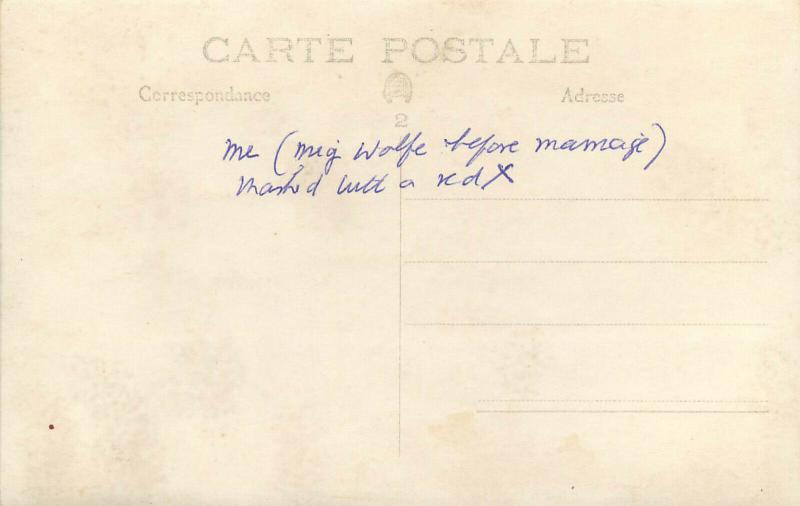 CARTE POSTALE
Correspondance Adresse
2
me (Meg Wolfe before marriage)
marked with a red X